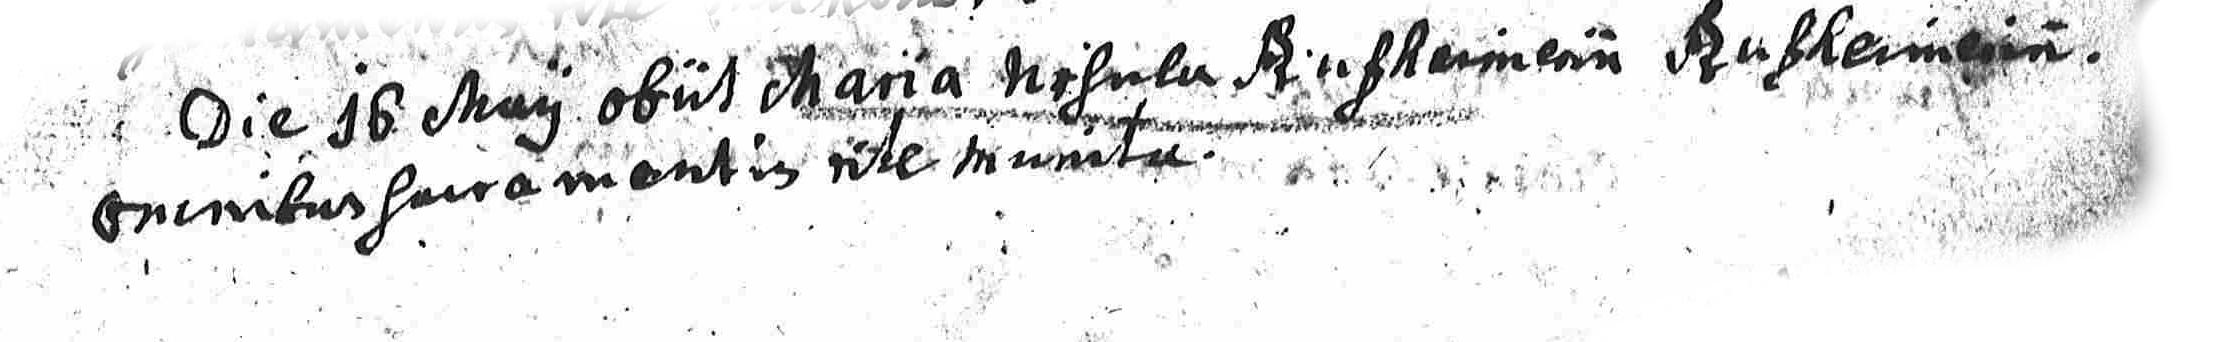 Die 16 Maÿ obiit Maria Ursula Rußheimerin Rußheimerin.
omnibus sacramentis rite munita.